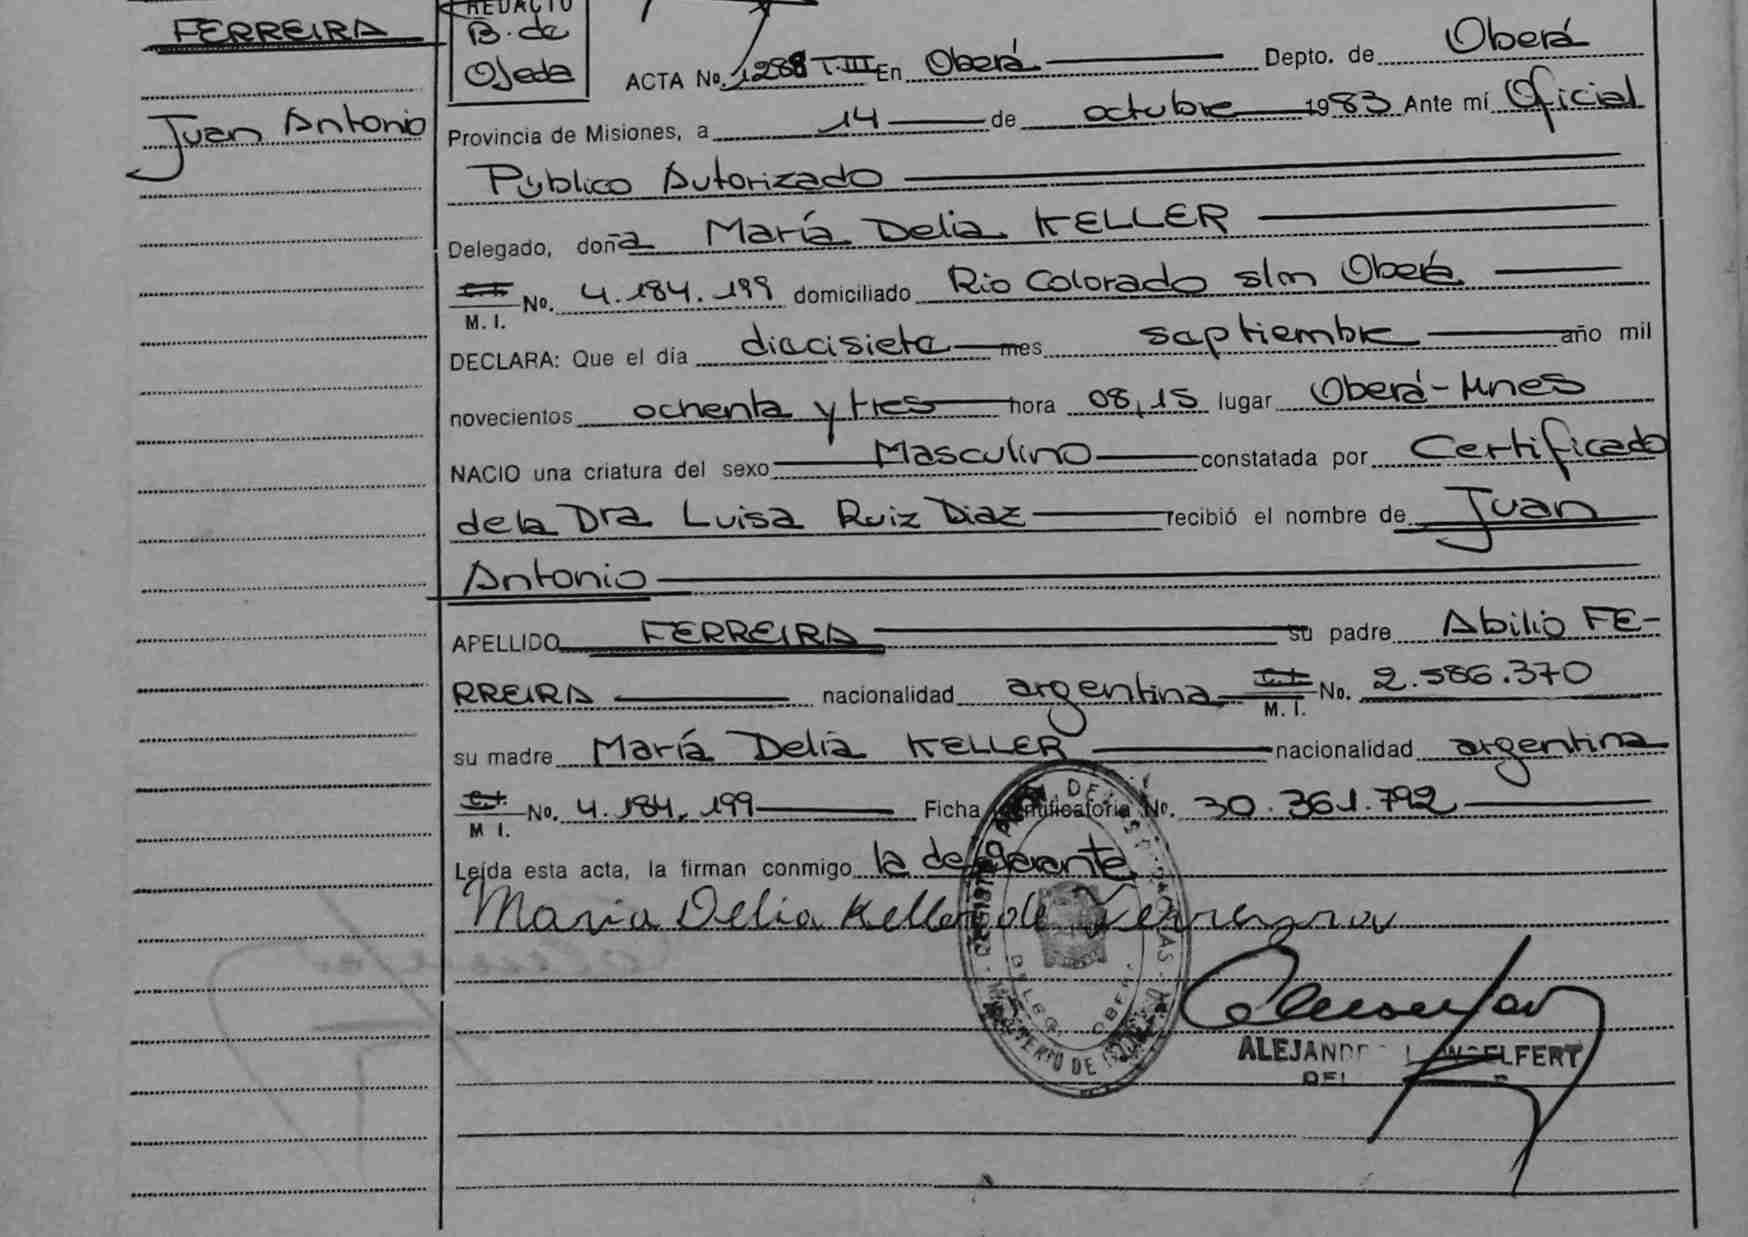 FERREIRA
Juan Antonio
REDACTO
B. de
Ojeda
ACTA No. 1288 T.III En Oberá Depto. de Oberá
Provincia de Misiones, a 14 de octubre 1983 Ante mí Oficial
Público Autorizado
Delegado, doña María Delia KELLER
C.I. M. I. No. 4.184.199 domiciliado Rio Colorado s/m Oberá
DECLARA: Que el día diecisiete mes septiembre año mil
novecientos ochenta y tres hora 08,15 lugar Oberá-Mnes
NACIO una criatura del sexo Masculino constatada por Certificado
de la Dra Luisa Ruiz Diaz recibió el nombre de Juan
Antonio
APELLIDO FERREIRA su padre Abilio FE-
RREIRA nacionalidad argentina C.I. M. I. No. 2.586.370
su madre María Delia KELLER nacionalidad argentina
C.I. M I. No. 4.184.199 Ficha Identificatoria No. 30.361.792
Leída esta acta, la firman conmigo la
Maria Delia Keller de
MINISTERIO DE
ALEJANDR